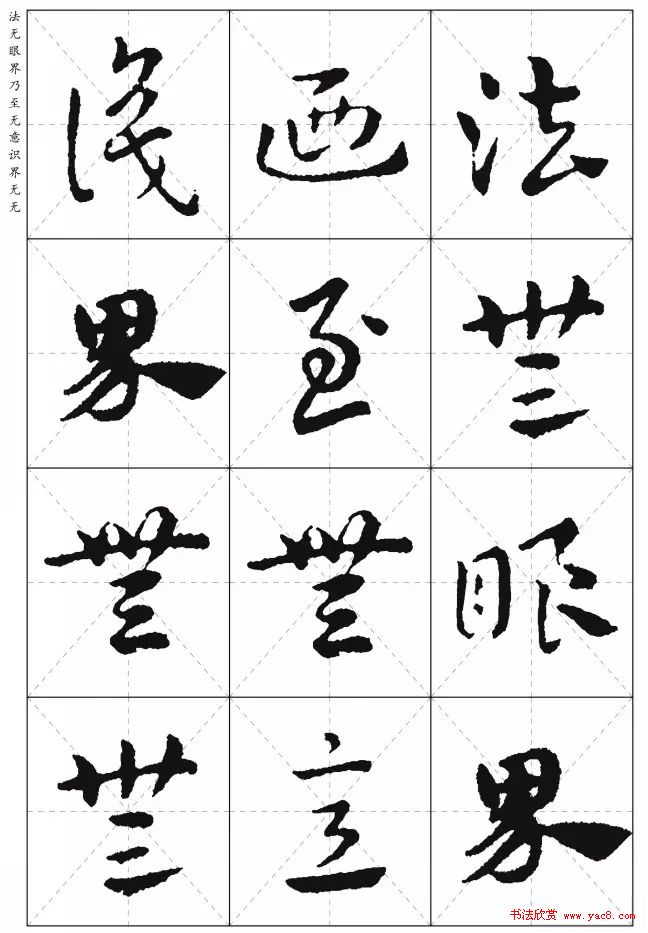 法无眼界乃至无意识界无无
法無眼界
迺至無意
識界無無
书法欣赏 www.yac8.com